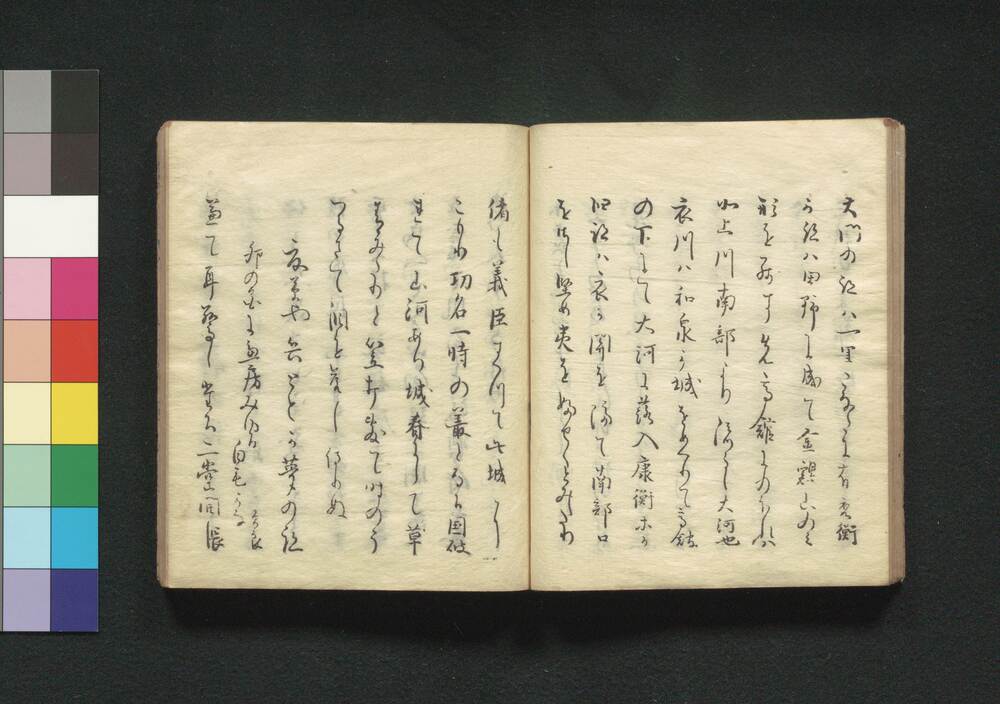 大門の跡ハ一里こなたに有秀衡
か跡ハ田野に成て金鶏山のミ
形を残す先高館にのほれハ
北上川南部より流るゝ大河也
衣川ハ和泉か城をめくりて高館
の下にて大河に落入康衡等か
旧跡ハ衣か関を隔て南部口
をさし堅め夷をふせくとみえたり
偖も義臣すくつて此城にこ
こもり功名一時の叢となる国破
れて山河あり城春にして草
青みたりと笠打敷て時のう
つるまて泪を落し侍りぬ
夏草や兵ともか夢の跡
卯の花に兼房みゆる白毛かな 曽良
兼て耳驚し而る二堂開帳